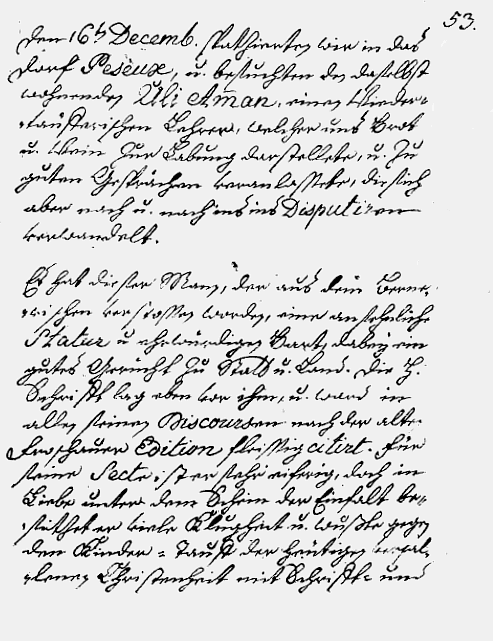 53.
Den 16ᵗ Decemb. spathierten wir in das
Dorf Peseux, u. besuchten den daselbst
wohnenden Uli Aman, einen Wieder-
täufferischen Lehrer, welcher uns Brot
u. Wein zur Labung darstellete, u. zu
guten Gesprächen veranlassete, die sich
aber nach u. nach ins Disputiren
verwandelt.
Es hat dieser Mann, der aus dem Berne-
rischen verstossen worden, eine ansehnliche
Statur u ehrwürdigen Bart, dabey ein
gutes Gerücht zu Statt u. Land. Die H.
Schrifft lag eben vor ihm, u. ward in
allen seinen Discoursen nach der alten
Froschauer Edition fleissig citirt. Für
seine Secte ist er sehr eiferig, doch in
Liebe unter dem Schein der Einfalt be-
sitzet er viele Klugheit u. wußte gegen
den Kinder-Tauff der heutigen verfal-
lenen Christenheit mit Schrifft- und